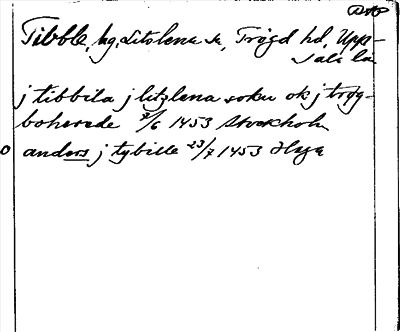 Tibble, hg, Litslena sn, Trögd hd, Upp-
sala län
j tibbila j litzlena sokn ok j trøg-
boherede 2/6 1453 Stockholm
O anders j tybille 23/7 1453